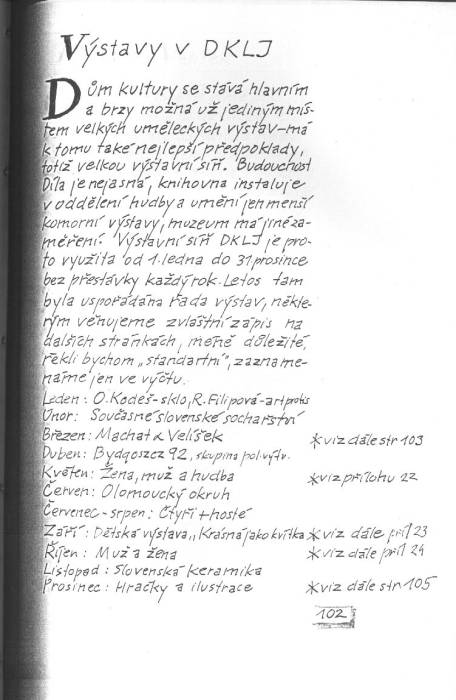 Výstavy v DKLJ
Dům kultury se stává hlavním
a brzy možná už jediným mís-
tem velkých uměleckých výstav-má
k tomu také nejlepší předpoklady,
totiž velkou výstavní síň. Budoucnost
Díla je nejasná, knihovna instaluje
v oddělení hudby a umění jen menší
komorní výstavy, muzeum má jiné za-
měření. Výstavní síň DKLJ je pro-
to využita od 1. ledna do 31 prosince
bez přestávky každý rok. Letos tam
byla uspořádána řada výstav, někte-
rým věnujeme zvláštní zápis na
dalších stránkách, méně důležité,
řekli bychom „standartní", zazname-
náme jen ve výčtu.
Leden: O. Kodeš-sklo, R. Filipová-artprotis
Únor: Současné slovenské sochařství
Březen: Machat & Velíšek *viz dále str 103
Duben: Bydgoszcz 92, skupina pol. výtv.
Květen: Žena, muž a hudba *viz přílohu 22
Červen: Olomoucký okruh
Červenec-srpen: Čtyři + hosté
Září: Dětská výstava „Krásná jako kvítka *viz dále příl 23
Říjen: Muž a žena *viz dále příl 24
Listopad: Slovenská keramika
Prosinec: Hračky a ilustrace *viz dále str 105
102